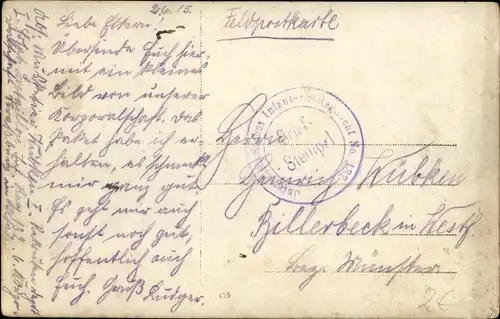 2/6. 15.
Feldpostkarte
Liebe Eltern!
Übersende Euch hier-
mit ein kleines
Bild von unserer
Korporalschaft. Das
Paket habe ich er-
halten, es schmeckt
mir ganz gut
Es geht mir auch
sonst noch gut,
hoffentlich auch
Euch. Gruß
Ludger.
Infanterie Regiment No.
Brief-
Stempel
Herrn
Heinrich Lübken
Billerbeck in Westf.
Bez. Münster
435
2€